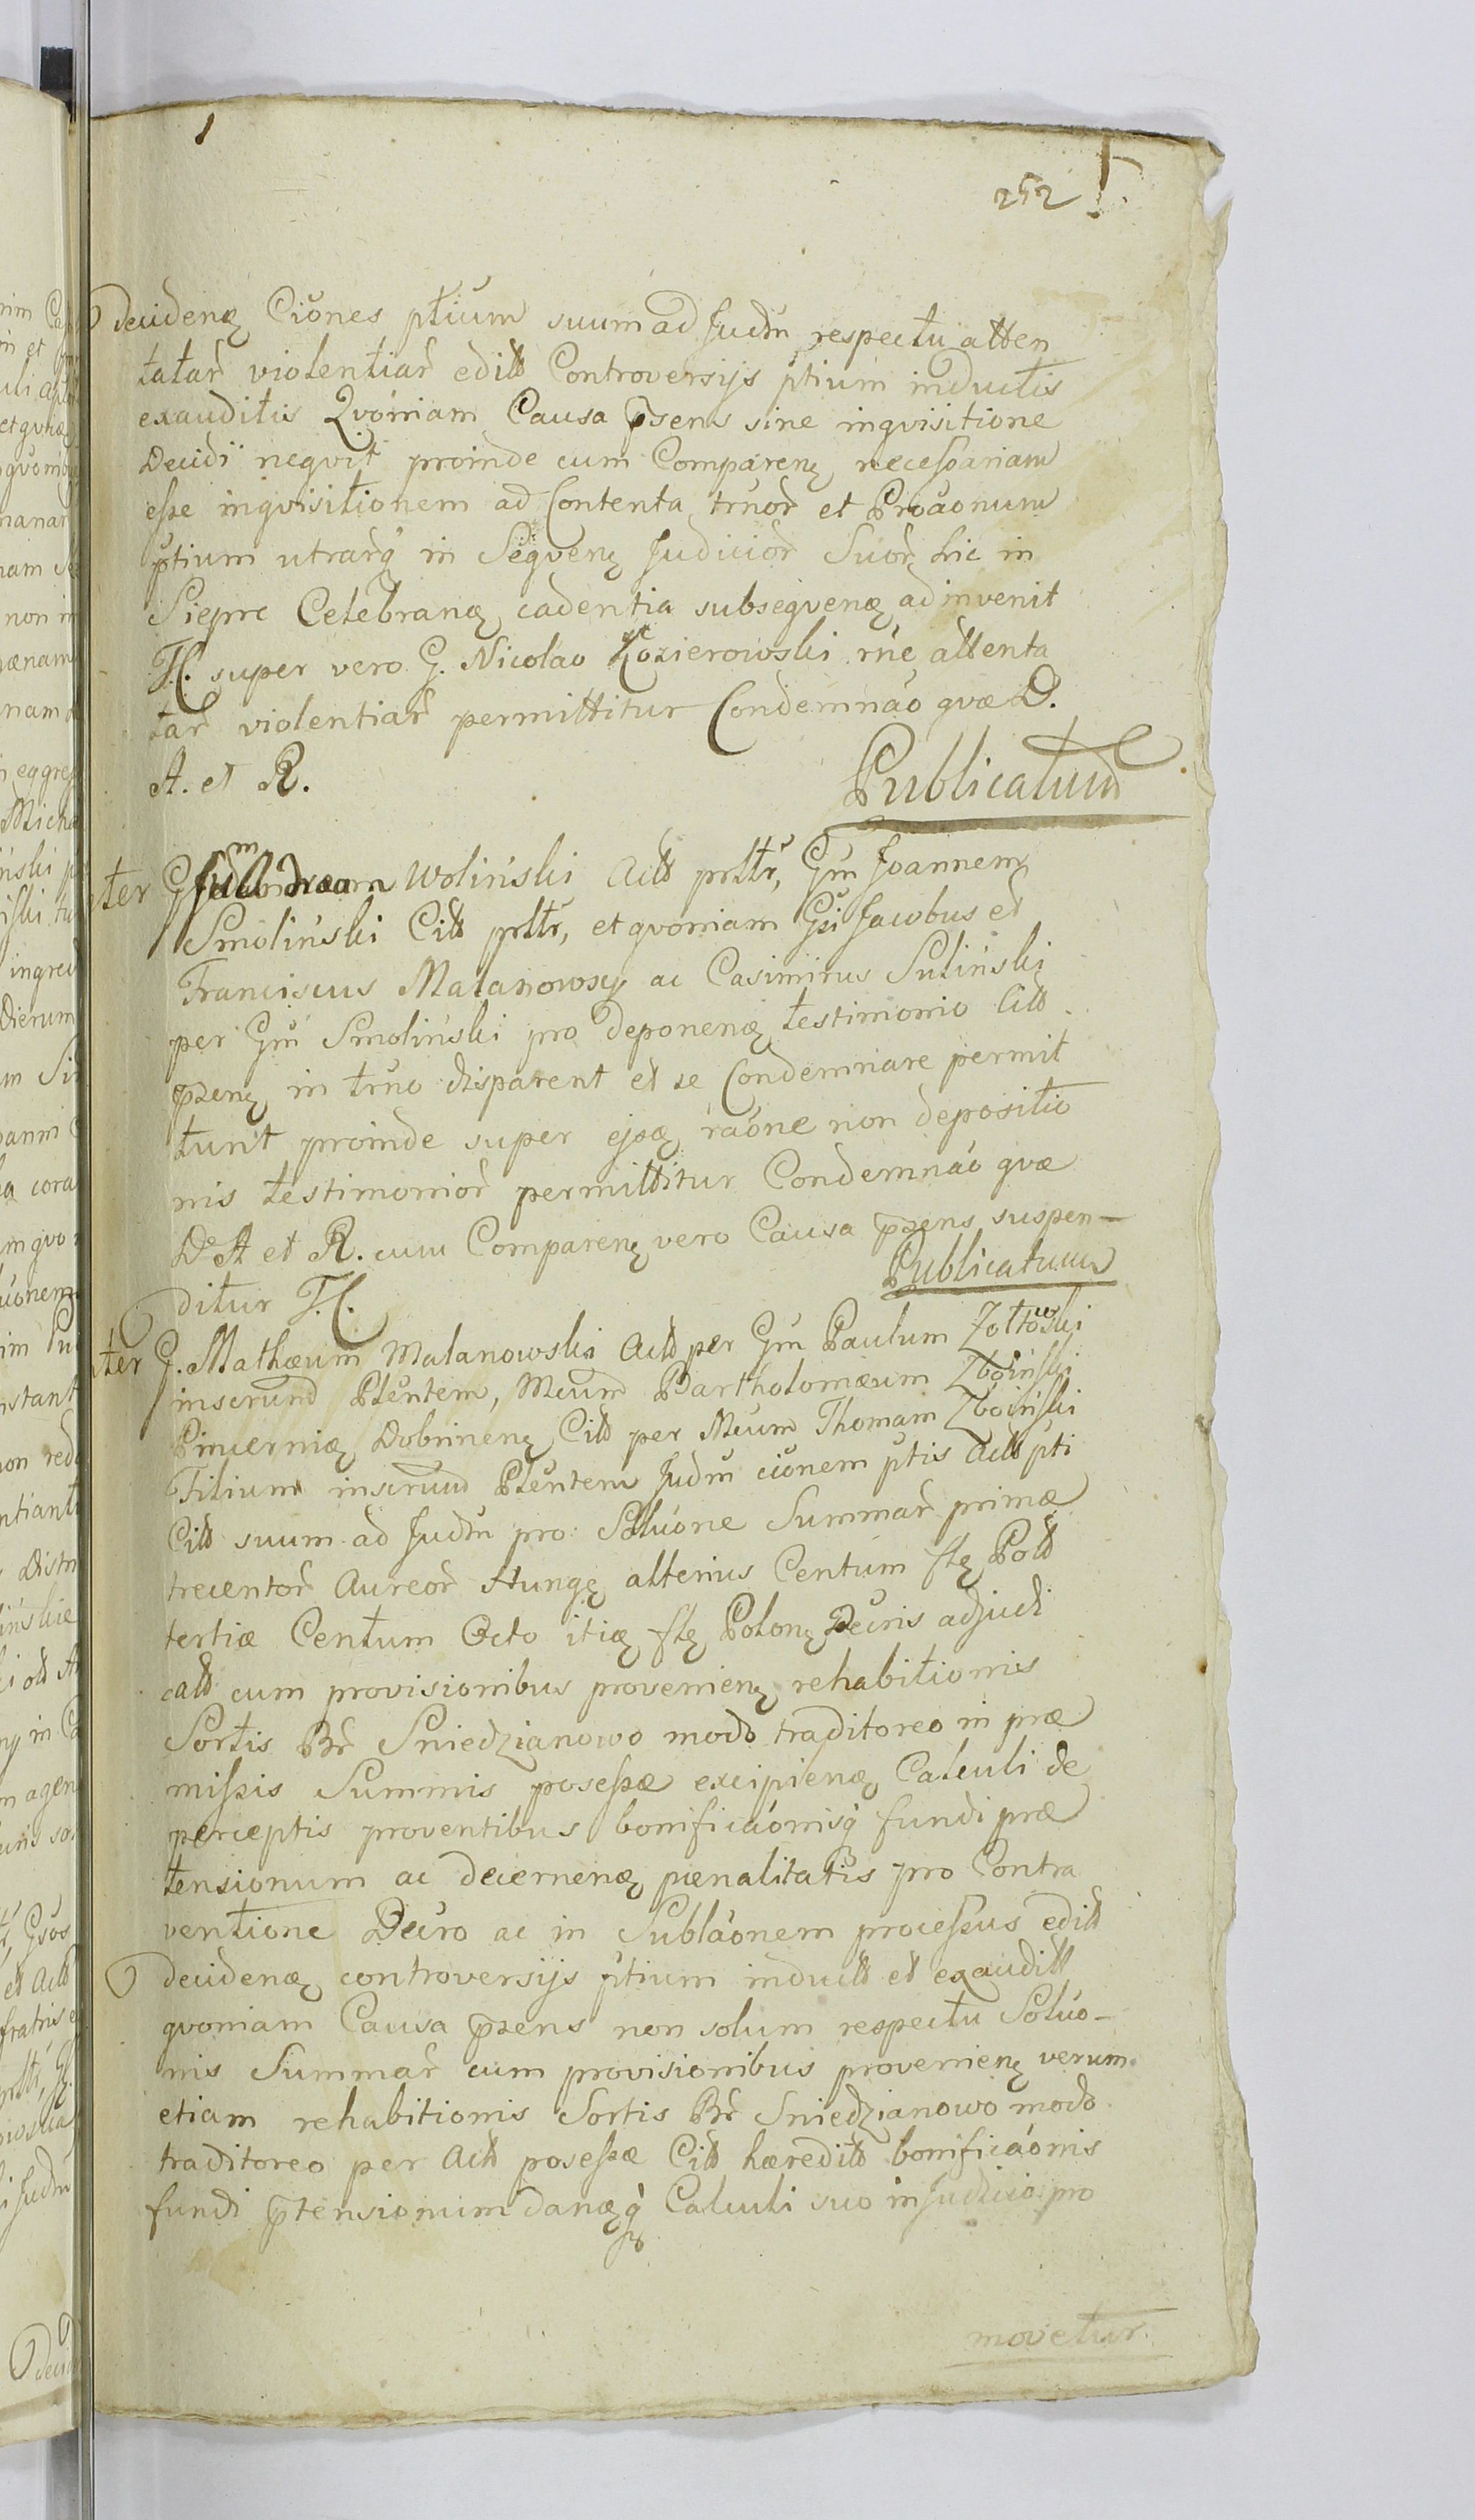 252
decidenꝫ Ciones ptium suum ad Judm respectu atten
tatar violentiar editt Controversijs ptium inductis
exauditis Qvoniam Causa pꝛsens sine inqvisitione
Decidi neqvit proinde cum Comparenꝫ necessariam
esse inqvisitionem ad Contenta trnor et Proaonum
ptium utrarq in Seqvenꝫ Judicior Suor hic in
Sieprc Celebranꝫ cadentia subseqvenꝫ adinvenit
T.C. super vero G. Nicolao Kozierowski rne attenta
tar violentiar permittitur Condemnao qvæ D.
A. et R.
Publicatum
ter Woliński Actt prltr, Gm Joannem
Smoliński Citt prltr, et qvoniam Gsi Jacobus et
Franciscus Malanowscy ac Casimirus Suliński
per Gm Smoliński pro deponenꝫ testimonio Citt
pꝛsenꝫ in trno disparent et se Condemnare permit
tunt proinde super ejsꝫ raone non depositio
nis testimonior permittitur Condemnao qvæ
D. A et R. cum Comparenꝫ vero Causa pꝛsens suspen-
ditur T.C.
Publicatum
ter G. Mathæum Malanowski Actt per Gm Paulum Zołtowski
inscrund Plentem, Mcum Bartholomæum Zboiński
Pincernią Dobrinenꝫ Citt per Mcum Thomam Zboiński
Filium inscrund Plentem Judm cionem ptis Actt pti
Citt suum ad Judm pro Soluone Summar primæ
trecentor Aureor Hungꝫ alterius Centum flꝫ Poltt
tertiæ Centum Octo itiꝫ flꝫ Polonꝫ Decris adjudi
catt cum provisionibus provenienꝫ rehabitionis
Sortis Br Sniedzianowo modo traditoreo in præ
missis Summis posessæ excipienꝫ Calculi de
perceptis proventibus bonificaonisq fundi præ
tensionum ac decernenꝫ pænalitatis pro Contra
ventione Decro ac in Sublaonem processus editt
decidenꝫ controversijs ptium inductt et exauditt
qvoniam Causa pꝛsens non solum respectu Soluo-
nis Summar cum provisionibus provenienꝫ verum
etiam rehabitionis Sortis Br Sniedzianowo modo
traditoreo per Actt posessæ Citt hæreditt bonificaonis
fundi pꝛtensionum danꝫq Calculi suo in Judicio pro
movetur